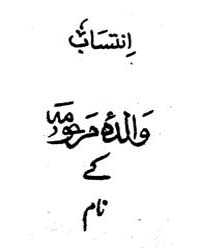 اِنتساب
والدۂ مرحومہ
کے
نام